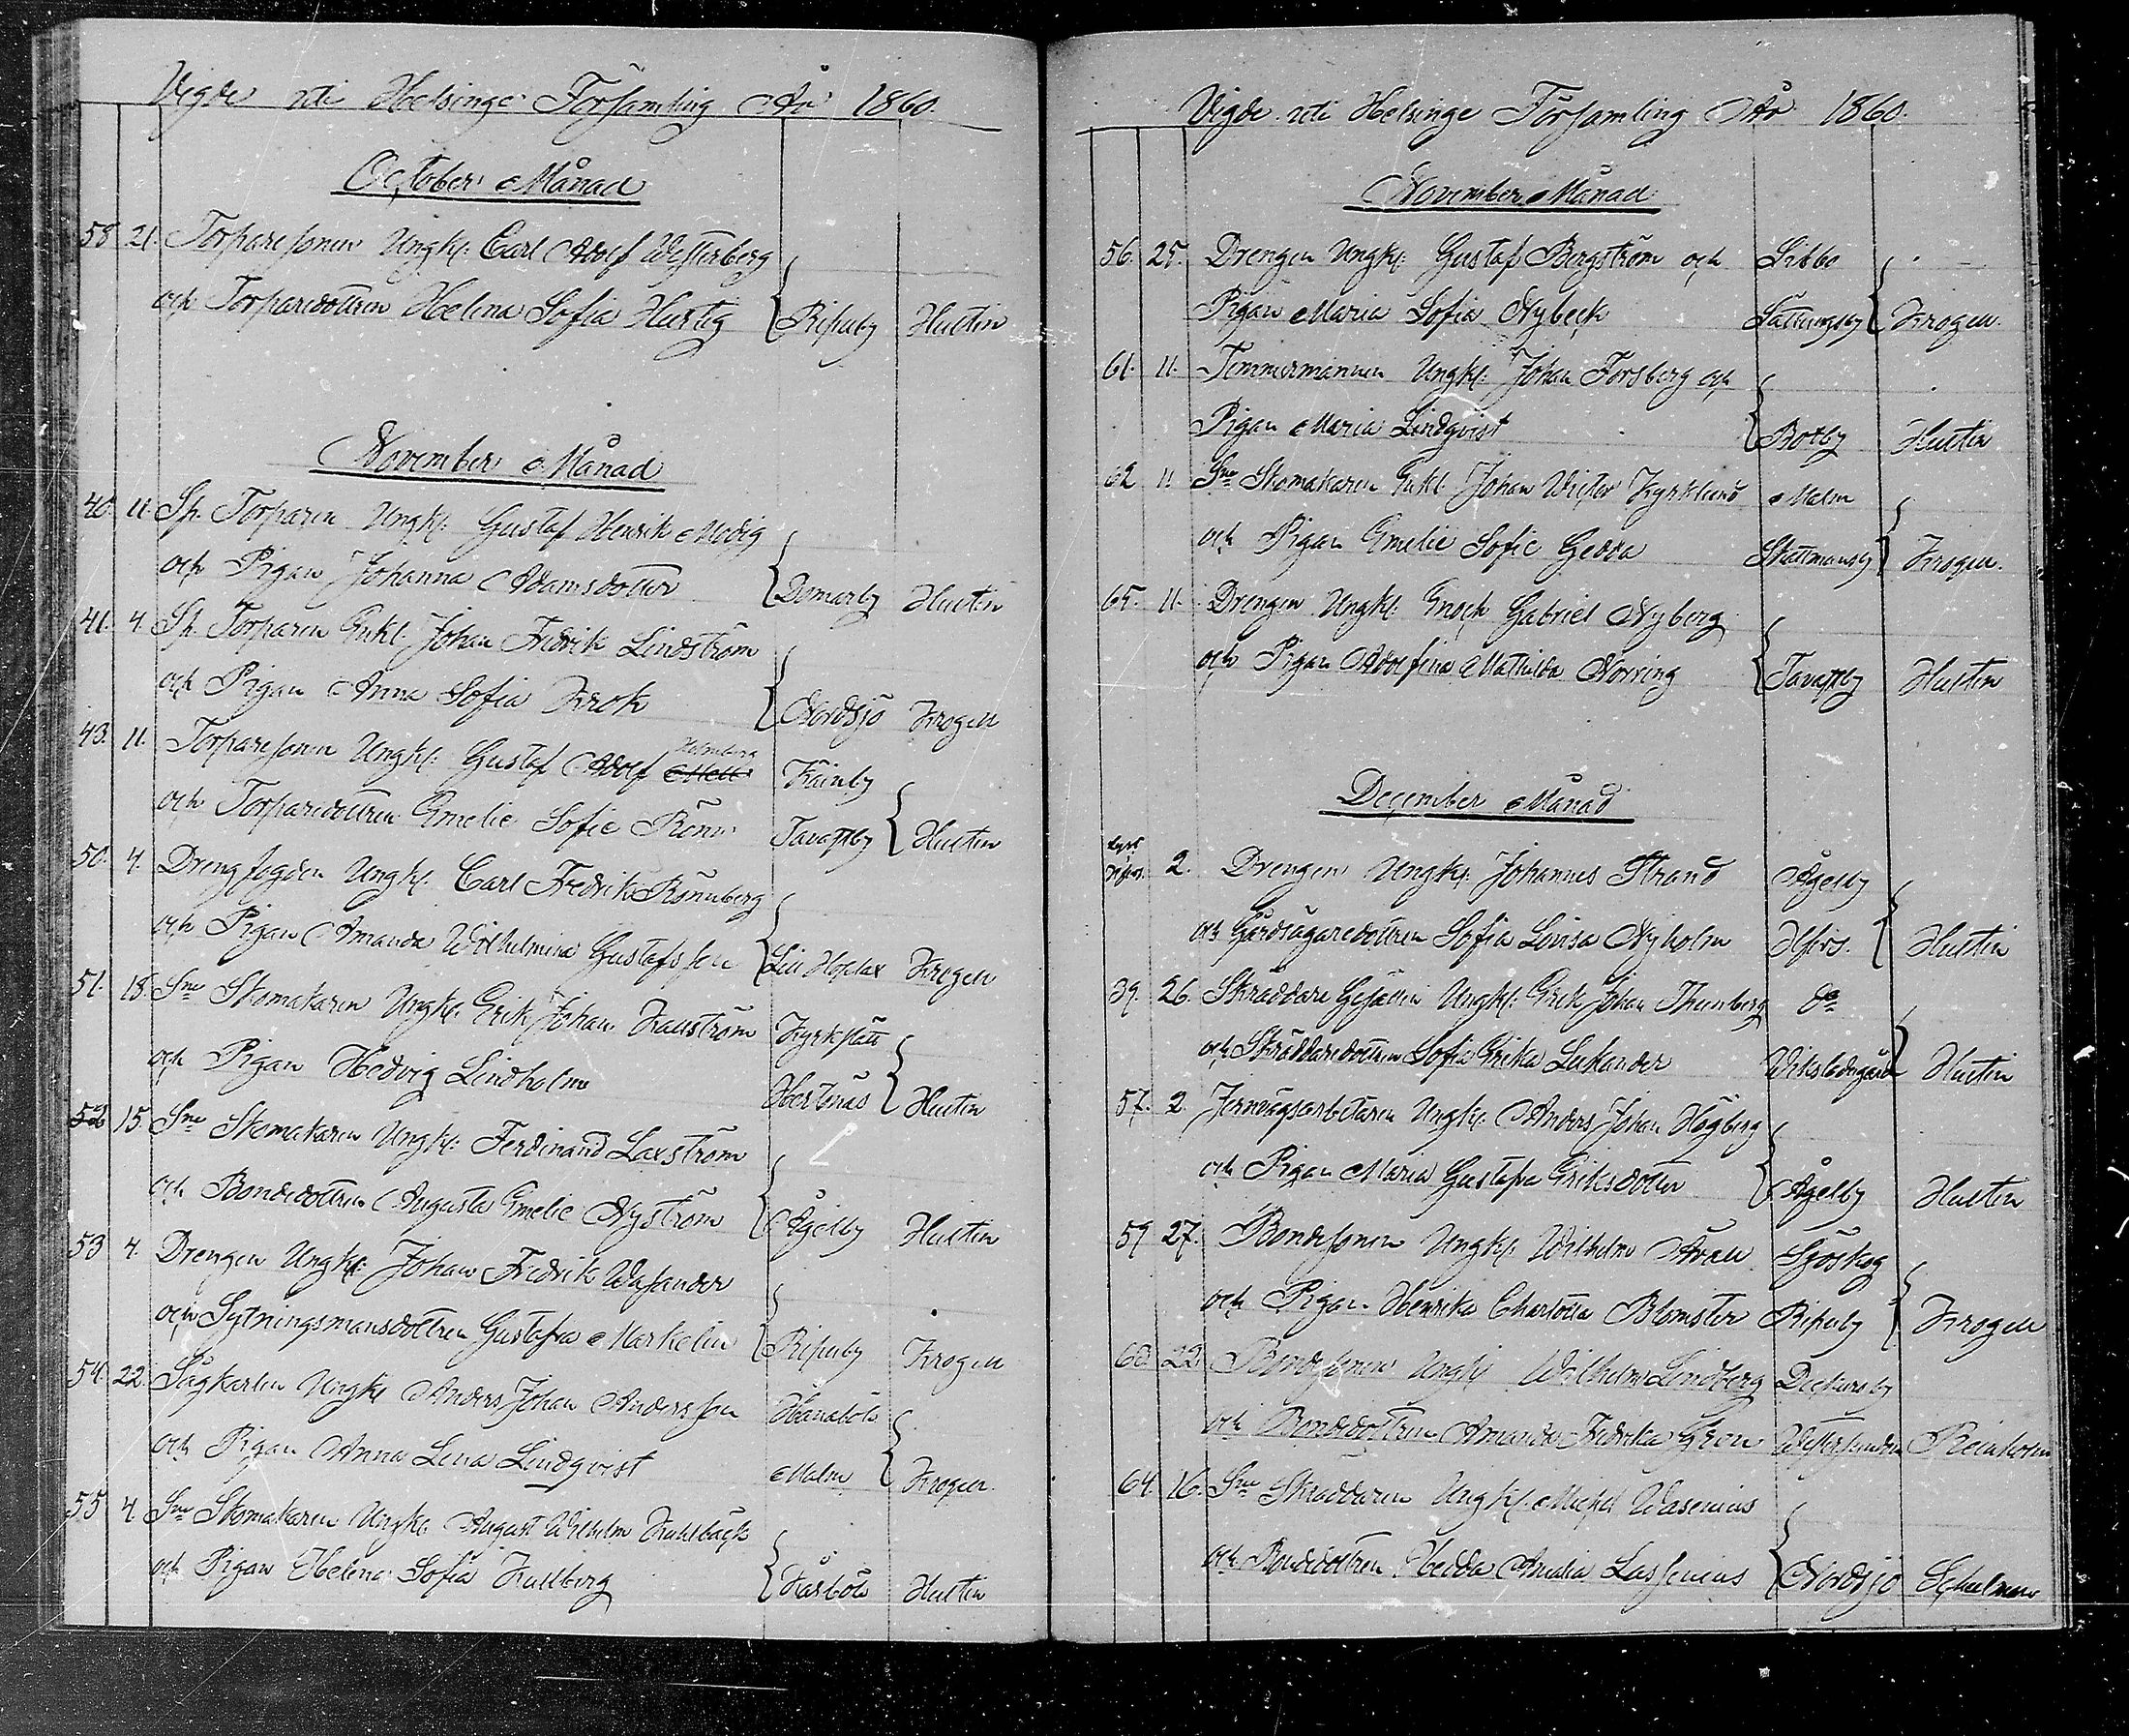 Vigde uti Helsinge Församling År 1860.
October Månad
58 21. Torparesonen Ungkl. Carl Adolf Westerberg
och Torparedottren Helena Sofia Hurtig Ripuby Hustin
November Månad
40. 11. Sp. Torparen Ungkl. Gustaf Henrik Modig
och Pigan Johanna Adamsdotter Domarby Hustin
41. 4. Sp. Torparen Enkl. Johan Fredrik Lindström
och Pigan Anna Sofia Krok Nordsjö Krogen
Holmberg
43. 11. Torparesonen Ungkl. Gustaf Adolf Kainby
och Torparedottren Emelie Sofie Rönn Tavastby Hustin
50. 4. Drengfogden Ungkl. Carl Fredrik Rönnberg
och Pigan Amanda Wilhelmina Gustafsson Lill Hoplax Krogen
51. 18. Sne Skomakaren Ungkl. Erik Johan Hallström Kyrkslätt
och Pigan Hedvig Lindholm Hertonäs Hustin
52 15. Sne Skomakaren Ungkl. Ferdinand Laxström
och Bondedottren Augusta Emelie Nyström Ågelby Hustin
53 4. Drengen Ungkl. Johan Fredrik Wasander
och Sytningsmansdottren Gustafva Markelin Ripuby Krogen
54. 22. Sågkarlen Ungkl. Anders Johan Andersson Hanaböle
och Pigan Anna Lena Lindqvist Malm Krogen.
55 4. Sne Skomakaren Ungkl. August Wilhelm Kuhlbäck
och Pigan Helena Sofia Kullberg Kårböle Hustin
Vigde uti Helsinge Församling År 1860.
November Månad
56. 25. Drengen Ungkl. Gustaf Bergström och Sibbo
Pigan Maria Sofia Nybeck Sottungsby Krogen.
61. 11. Timmermannen Ungkl. Johan Forsberg och
Pigan Maria Lindqvist Botby Hustin
62 11. Sne Skomakaren Enkl. Johan Victor Kyrklund Malm
och Pigan Emelie Sofie Gedda Skattmansby Krogen.
65. 11. Drengen Ungkl. Enock Gabriel Nyberg
och Pigan Adolfina Mathilda Norring Tavastby Hustin
December Månad
2. Drengen Ungkl. Johannes Strand Ågelby
och Gårdsägaredottren Sofia Lovisa Nyholm Hfors. Hustin
39. 26. Skräddare Gesällen Ungkl. Erik Johan Thunberg do
och Skräddaredottren Sofia Erika Lukander Wiksladugård Hustin
57. 2. Jernvägsarbetaren Ungkl. Anders Johan Högberg
och Pigan Maria Gustafva Eriksdotter Ågelby Hustin
59 27. Bondesonen Ungkl. Wilhelm Avell Sjöskog
och Pigan Henrika Charlotta Blomster Ripuby Krogen
60. 22. Bondesonen Ungkl Wilhelm Lindberg Dickursby
och Bondedottren Amanda Fredrika Gren Westersundom Reinholm
64. 16. Sne Skräddaren Ungkl. Michel Wasenius
och Bondedottren Hedda Amalia Lassenius Nordsjö Schulman